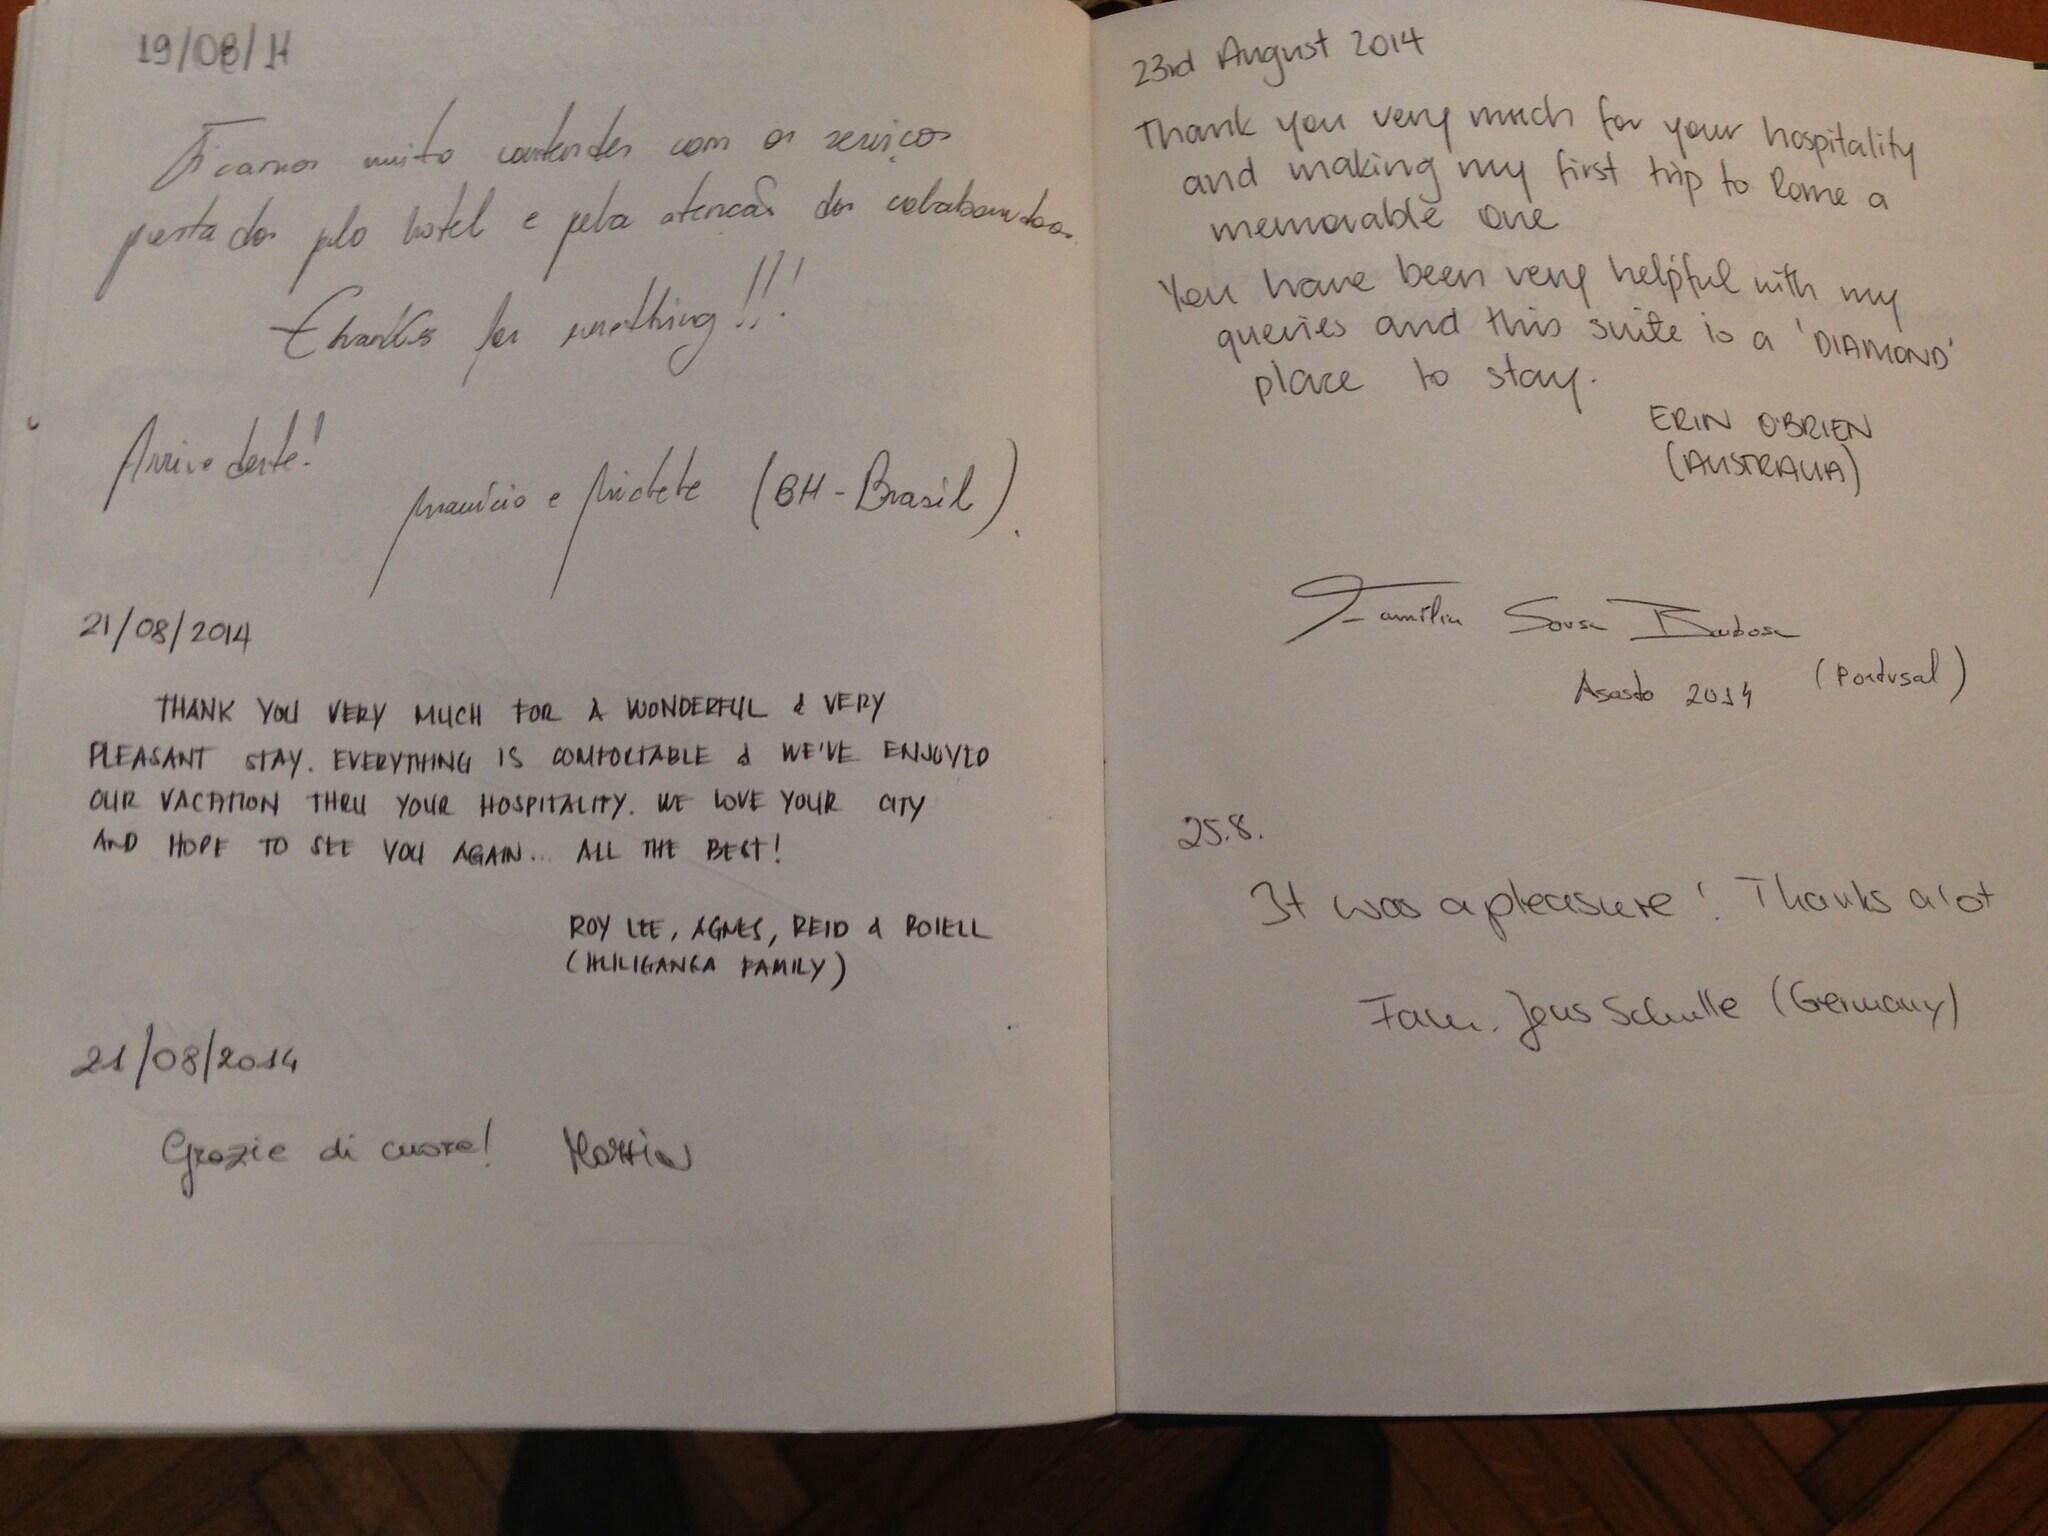 19/08/14
Ficamos muito contentes com os serviços
prestados pelo hotel e pela atenção dos colaboradores.
Thanks for something!!!
Arrivederte!
Maurício e (BH-Brasil).
21/08/2014
THANK YOU VERY MUCH FOR A WONDERFUL & VERY
PLEASANT STAY. EVERYTHING IS COMFORTABLE & WE'VE ENJOYED
OUR VACATION THRU YOUR HOSPITALITY. WE LOVE YOUR CITY
AND HOPE TO SEE YOU AGAIN... ALL THE BEST!
ROY LEE, AGNES, REID & ROIELL
(HULIGANGA FAMILY)
21/08/2014
Grazie di cuore!
23rd August 2014
Thank you very much for your hospitality
and making my first trip to Rome a
memorable one
You have been very helpful with my
queries and this suite is a 'DIAMOND'
place to stay.
ERIN O'BRIEN
(AUSTRALIA)
Família Sousa Barbosa
(Portugal)
Agosto 2014
25.8.
It was a pleasure! Thanks a lot
Fam. Jens Schulle (Germany)